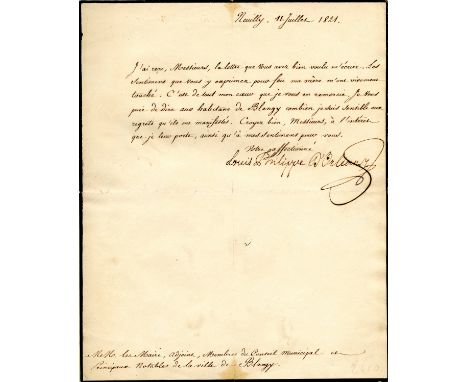 Neuilly 11 Juillet 1821.
J'ai reçu, Messieurs, la lettre que vous avez bien voulu m'écrire. Les
Sentimens que vous y exprimez pour feu ma mère m'ont vivement
touché. C'est de tout mon cœur que je vous en remercie. Je vous
prie de dire aux habitans de Blangy combien je suis sensible aux
regrets qu'ils ont manifestés. Croyez bien, Messieurs, à l'intérêt
que je leur porte, ainsi qu'à mes sentimens pour vous.
Votre affectionné
Louis Philippe D'Orléans
M.M. les Maire, adjoint, Membres du Conseil municipal et
Principaux Notables de la ville de Blangy